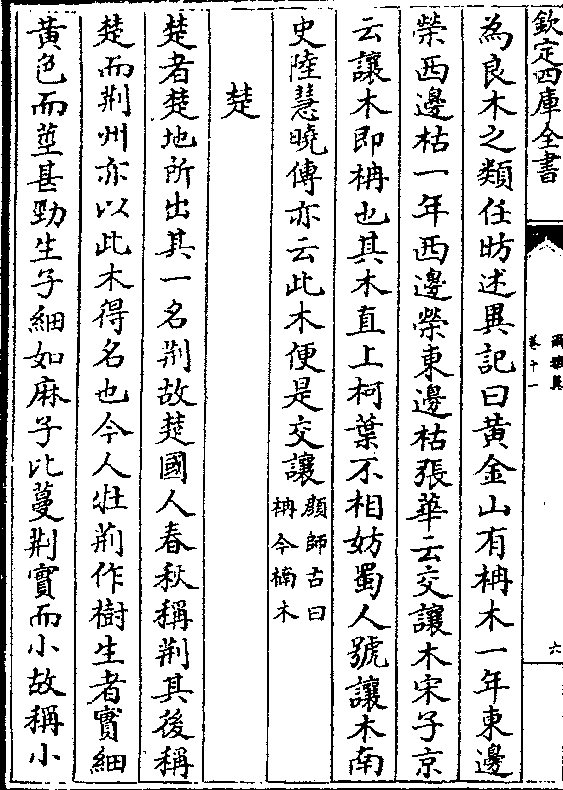 欽定四庫全書
爾雅翼
卷十一
六
為良木之類任昉述異記曰黄金山有柟木一年東邊
榮西邊枯一年西邊榮東邊枯張華云交讓木宋子京
云讓木即柟也其木直上柯葉不相妨蜀人號讓木南
史陸慧曉傳亦云此木便是交讓顔師古曰
柟今楠木
楚
楚者楚地所出其一名荆故楚國人春秋稱荆其後稱
楚而荆州亦以此木得名也今人壮荆作樹生者實細
黄色而莖甚勁生子細如麻子比蔓荆實而小故稱小